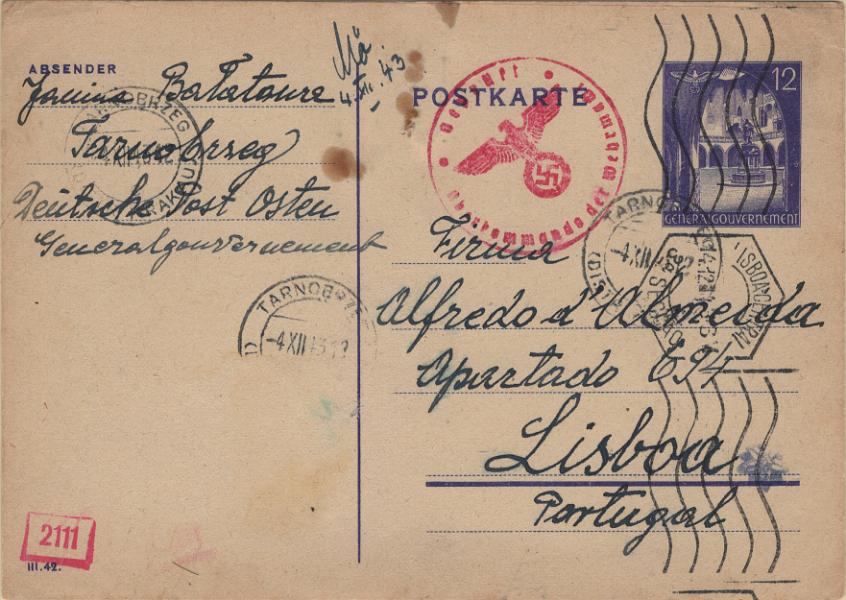 ABSENDER
Janina Batatoure
Tarnobrzeg
Deutsche Post Osten
Generalgouvernement
4.XII.43.
POSTKARTE
Geprüft
Oberkommando der Wehrmacht
12
GENERALGOUVERNEMENT
TARNOBRZEG
-4.XII.43.12
TARNOBRZE
-4XII.43.12
LISBOA CENTRAL
Firma
Alfredo d'Almeida
Apartado 694
Lisboa
Portugal
2111
III.42.